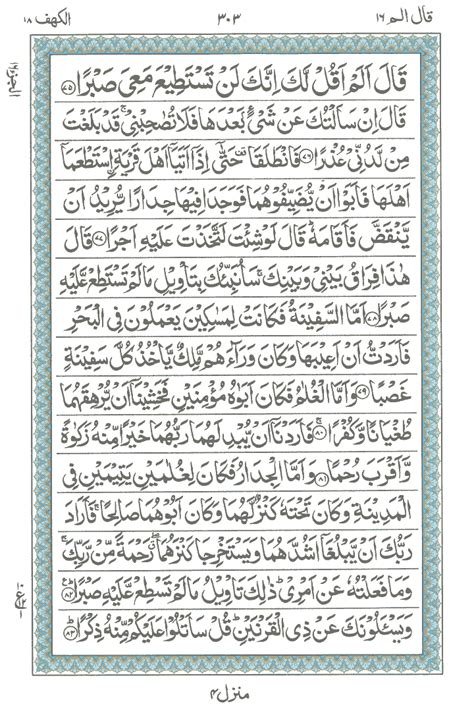 قال الم ١٦
٣٠٣
الكهف ١٨
قَالَ اَلَمْ اَقُلْ لَّكَ اِنَّكَ لَنْ تَسْتَطِيْعَ مَعِيَ صَبْرًا ﴿٧٥﴾
قَالَ اِنْ سَاَلْتُكَ عَنْ شَيْءٍۭ بَعْدَهَا فَلَا تُصٰحِبْنِيْ ۚ قَدْ بَلَغْتَ
مِنْ لَّدُنِّيْ عُذْرًا ﴿٧٦﴾ فَانْطَلَقَا ۥ حَتّٰۤى اِذَاۤ اَتَيَاۤ اَهْلَ قَرْيَةِ ۨاسْتَطْعَمَاۤ
اَهْلَهَا فَاَبَوْا اَنْ يُّضَيِّفُوْهُمَا فَوَجَدَا فِيْهَا جِدَارًا يُّرِيْدُ اَنْ
يَّنْقَضَّ فَاَقَامَهٗ ؕ قَالَ لَوْ شِئْتَ لَتَّخَذْتَ عَلَيْهِ اَجْرًا ﴿٧٧﴾ قَالَ
هٰذَا فِرَاقُ بَيْنِيْ وَبَيْنِكَ ۚ سَاُنَبِّئُكَ بِتَاْوِيْلِ مَا لَمْ تَسْتَطِعْ عَّلَيْهِ
صَبْرًا ﴿٧٨﴾ اَمَّا السَّفِيْنَةُ فَكَانَتْ لِمَسٰكِيْنَ يَعْمَلُوْنَ فِي الْبَحْرِ
فَاَرَدْتُّ اَنْ اَعِيْبَهَا وَكَانَ وَرَآءَهُمْ مَّلِكٌ يَّاْخُذُ كُلَّ سَفِيْنَةٍ
غَصْبًا ﴿٧٩﴾ وَاَمَّا الْغُلٰمُ فَكَانَ اَبَوٰهُ مُؤْمِنَيْنِ فَخَشِيْنَاۤ اَنْ يُّرْهِقَهُمَا
طُغْيَانًا وَّكُفْرًا ﴿٨٠﴾ فَاَرَدْنَاۤ اَنْ يُّبْدِلَهُمَا رَبُّهُمَا خَيْرًا مِّنْهُ زَكٰوةً
وَّاَقْرَبَ رُحْمًا ﴿٨١﴾ وَاَمَّا الْجِدَارُ فَكَانَ لِغُلٰمَيْنِ يَتِيْمَيْنِ فِي
الْمَدِيْنَةِ وَكَانَ تَحْتَهٗ كَنْزٌ لَّهُمَا وَكَانَ اَبُوْهُمَا صَالِحًا ۚ فَاَرَادَ
رَبُّكَ اَنْ يَّبْلُغَاۤ اَشُدَّهُمَا وَيَسْتَخْرِجَا كَنْزَهُمَا ۖ رَحْمَةً مِّنْ رَّبِّكَ ۚ
وَمَا فَعَلْتُهٗ عَنْ اَمْرِيْ ؕ ذٰلِكَ تَاْوِيْلُ مَا لَمْ تَسْطِعْ عَّلَيْهِ صَبْرًا ﴿٨٢﴾
وَيَسْـَٔلُوْنَكَ عَنْ ذِي الْقَرْنَيْنِ ؕ قُلْ سَاَتْلُوْا عَلَيْكُمْ مِّنْهُ ذِكْرًا ﴿٨٣﴾
منزل ٤